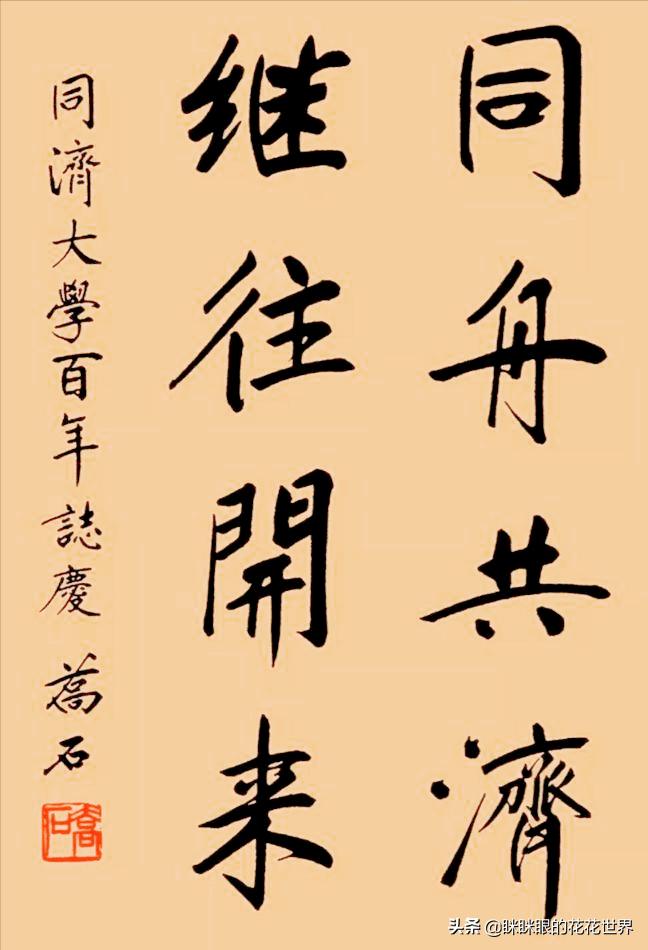 同舟共濟
继往開来
同濟大學百年誌慶 喬石
喬石
头条 @眯眯眼的花花世界